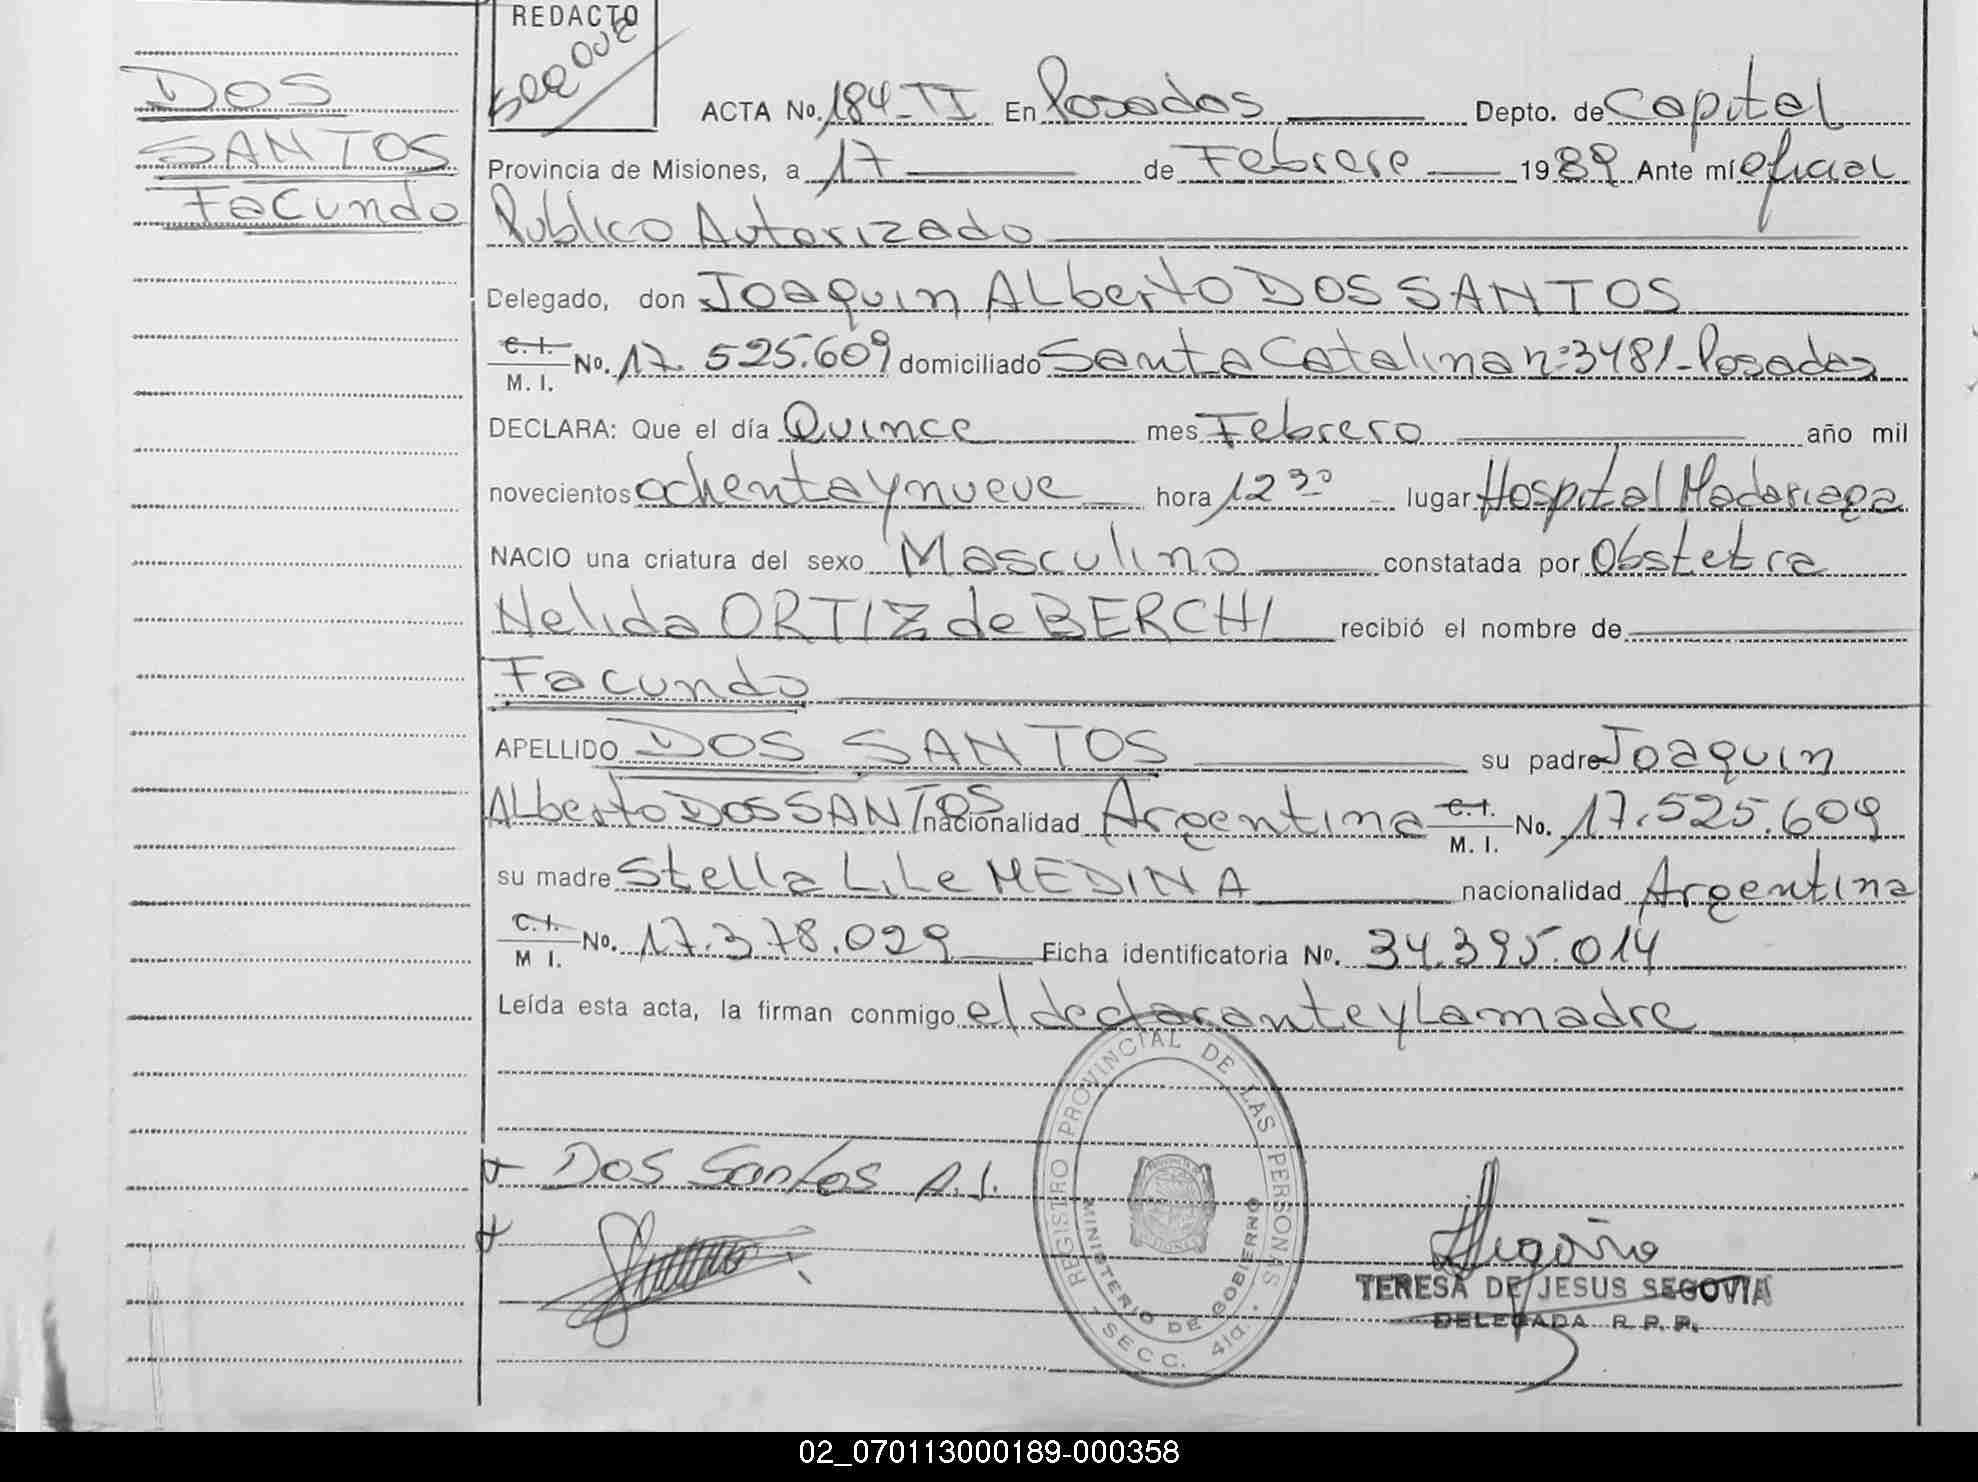 DOS
SANTOS
Facundo
REDACTO
ACTA No. 184-TI En Posadas Depto. de Capital
Provincia de Misiones, a 17 de Febrero 1989 Ante mí Oficial
Publico Autorizado
Delegado, don Joaquin Alberto DOS SANTOS
C. I. / M. I. No. 17.525.609 domiciliado Santa Catalina nº 3481-Posadas
DECLARA: Que el día Quince mes Febrero año mil
novecientos ochenta y nueve hora 12 30 lugar Hospital Madariaga
NACIO una criatura del sexo Masculino constatada por Obstetra
Nelida ORTIZ de BERCHI recibió el nombre de
Facundo
APELLIDO DOS SANTOS su padre Joaquin
Alberto DOS SANTOS nacionalidad Argentina C. I. / M. I. No. 17.525.609
su madre Stella Lile MEDINA nacionalidad Argentina
C. I. / M I. No. 17.378.029 Ficha identificatoria No. 34.395.014
Leída esta acta, la firman conmigo el declarante y la madre
REGISTRO PROVINCIAL DE LAS PERSONAS
MINISTERIO DE GOBIERNO
SECC. 4ta.
Dos Santos A. J.
Segovia
TERESA DE JESUS SEGOVIA
DELEGADA R. P. P.
02_070113000189-000358